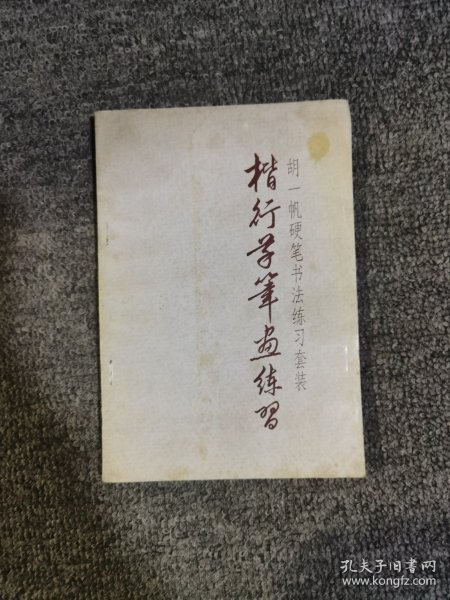 胡一帆硬笔书法练习套装
楷行草筆畫练習
孔夫子旧书网
www.kongfz.com